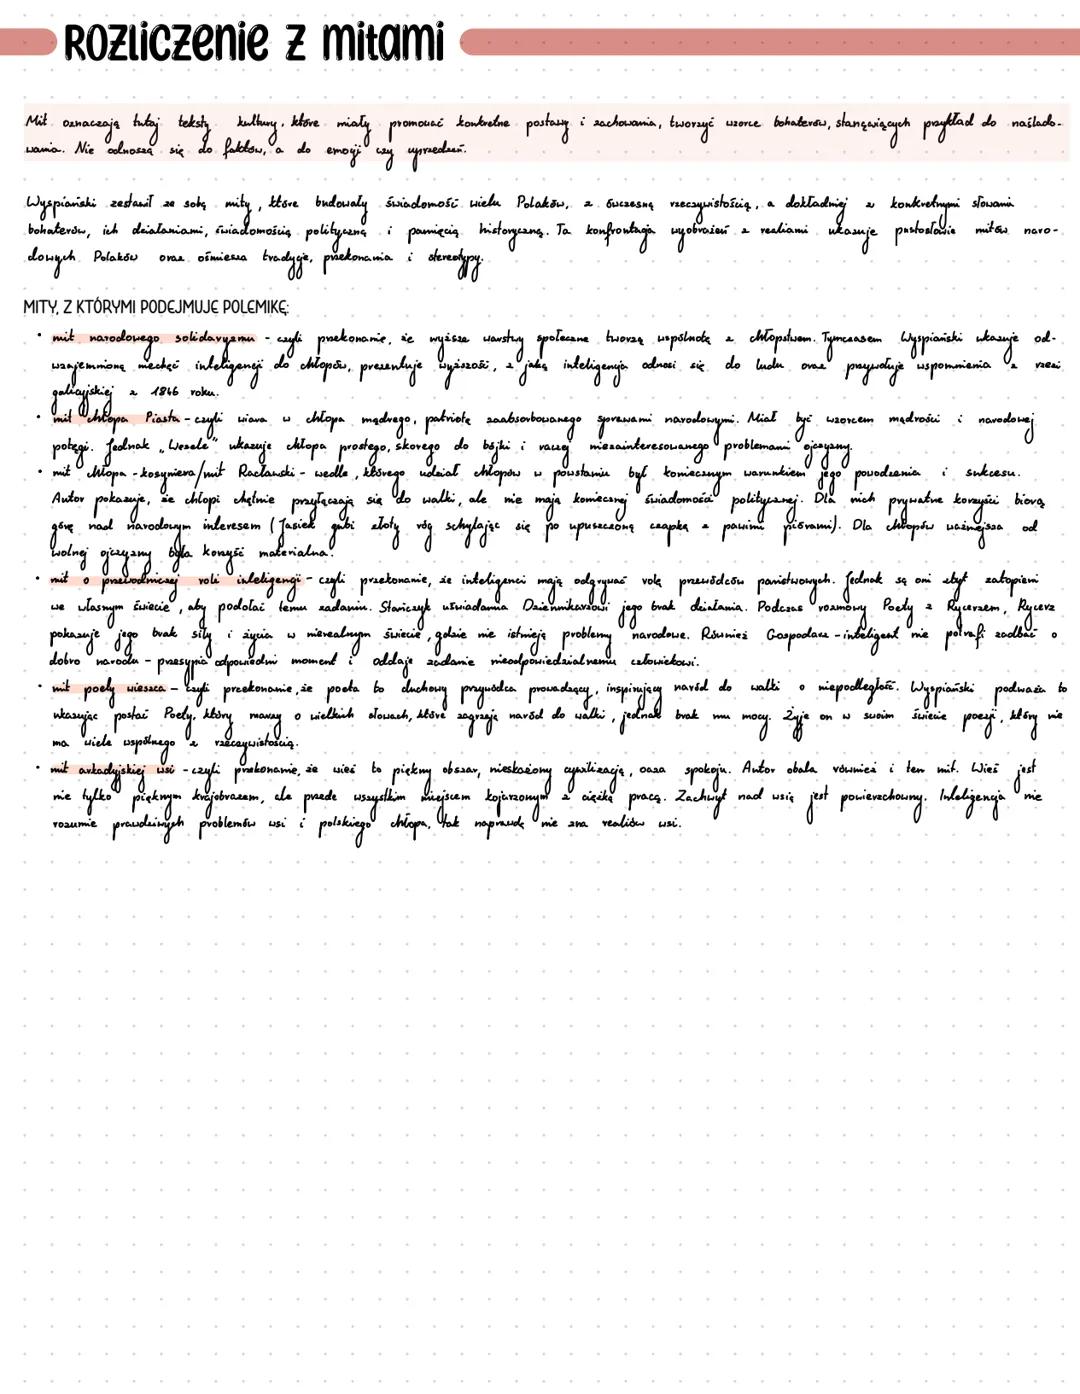 Rozliczenie z mitami
Mit oznaczają tutaj teksty kultury, które miały promować konkretne postawy i zachowania, tworzyć wzorce bohaterów, stanowiących przykład do naślado-
wania. Nie odnoszą się do faktów, a do emocji czy uprzedzeń.
Wyspiański zestawił ze sobą mity, które budowały świadomość wielu Polaków, z ówczesną rzeczywistością, a dokładniej z konkretnymi słowami
bohaterów, ich działaniami, świadomością polityczną i pamięcią historyczną. Ta konfrontacja wyobrażeń z realiami ukazuje pustosłowie mitów naro-
dowych Polaków oraz ośmiesza tradycje, przekonania i stereotypy.
MITY, Z KTÓRYMI PODEJMUJE POLEMIKĘ:
• mit narodowego solidaryzmu - czyli przekonanie, że wyższe warstwy społeczne tworzą wspólnotę z chłopstwem. Tymczasem Wyspiański ukazuje od-
wzajemnioną niechęć inteligencji do chłopów, prezentuje wyższość, z jaką inteligencja odnosi się do ludu oraz przywołuje wspomnienia z rzezi
galicyjskiej z 1846 roku.
• mit chłopa Piasta - czyli wiara w chłopa mądrego, patriotę zaabsorbowanego sprawami narodowymi. Miał być wzorcem mądrości i narodowej
potęgi. Jednak „Wesele" ukazuje chłopa prostego, skorego do bójki i raczej niezainteresowanego problemami ojczyzny.
• mit chłopa - kosyniera/mit Racławski - wedle, którego udział chłopów w powstaniu był koniecznym warunkiem jego powodzenia i sukcesu.
Autor pokazuje, że chłopi chętnie przyłączają się do walki, ale nie mają koniecznej świadomości politycznej. Dla nich prywatne korzyści biorą
górę nad narodowym interesem (Jasiek gubi złoty róg schylając się po upuszczoną czapkę z pawimi piórami). Dla chłopów ważniejsza od
wolnej ojczyzny była korzyść materialna.
• mit o przewodniczej roli inteligencji - czyli przekonanie, że inteligenci mają odgrywać rolę przewódców państwowych. Jednak są oni zbyt zatopieni
we własnym świecie, aby podołać temu zadaniu. Stańczyk uświadamia Dziennikarzowi jego brak działania. Podczas rozmowy Poety z Rycerzem, Rycerz
pokazuje jego brak siły i życia w nierealnym świecie, gdzie nie istnieją problemy narodowe. Również Gospodarz - inteligent nie potrafi zadbać o
dobro narodu - przesypia odpowiedni moment i oddaje zadanie nieodpowiedzialnemu człowiekowi.
• mit poety wieszcza - czyli przekonanie, że poeta to duchowy przywódca prowadzący, inspirujący naród do walki o niepodległość. Wyspiański podważa to
ukazując postać Poety, który marzy o wielkich słowach, które zagrzeją naród do walki, jednak brak mu mocy. Żyje on w swoim świecie poezji, który nie
ma wiele wspólnego z rzeczywistością.
• mit arkadyjskiej wsi - czyli przekonanie, że wieś to piękny obszar, nieskażony cywilizacją, oaza spokoju. Autor obala również i ten mit. Wieś jest
nie tylko pięknym krajobrazem, ale przede wszystkim miejscem kojarzonym z ciężką pracą. Zachwyt nad wsią jest powierzchowny. Inteligencja nie
rozumie prawdziwych problemów wsi i polskiego chłopa, tak naprawdę nie zna realiów wsi.